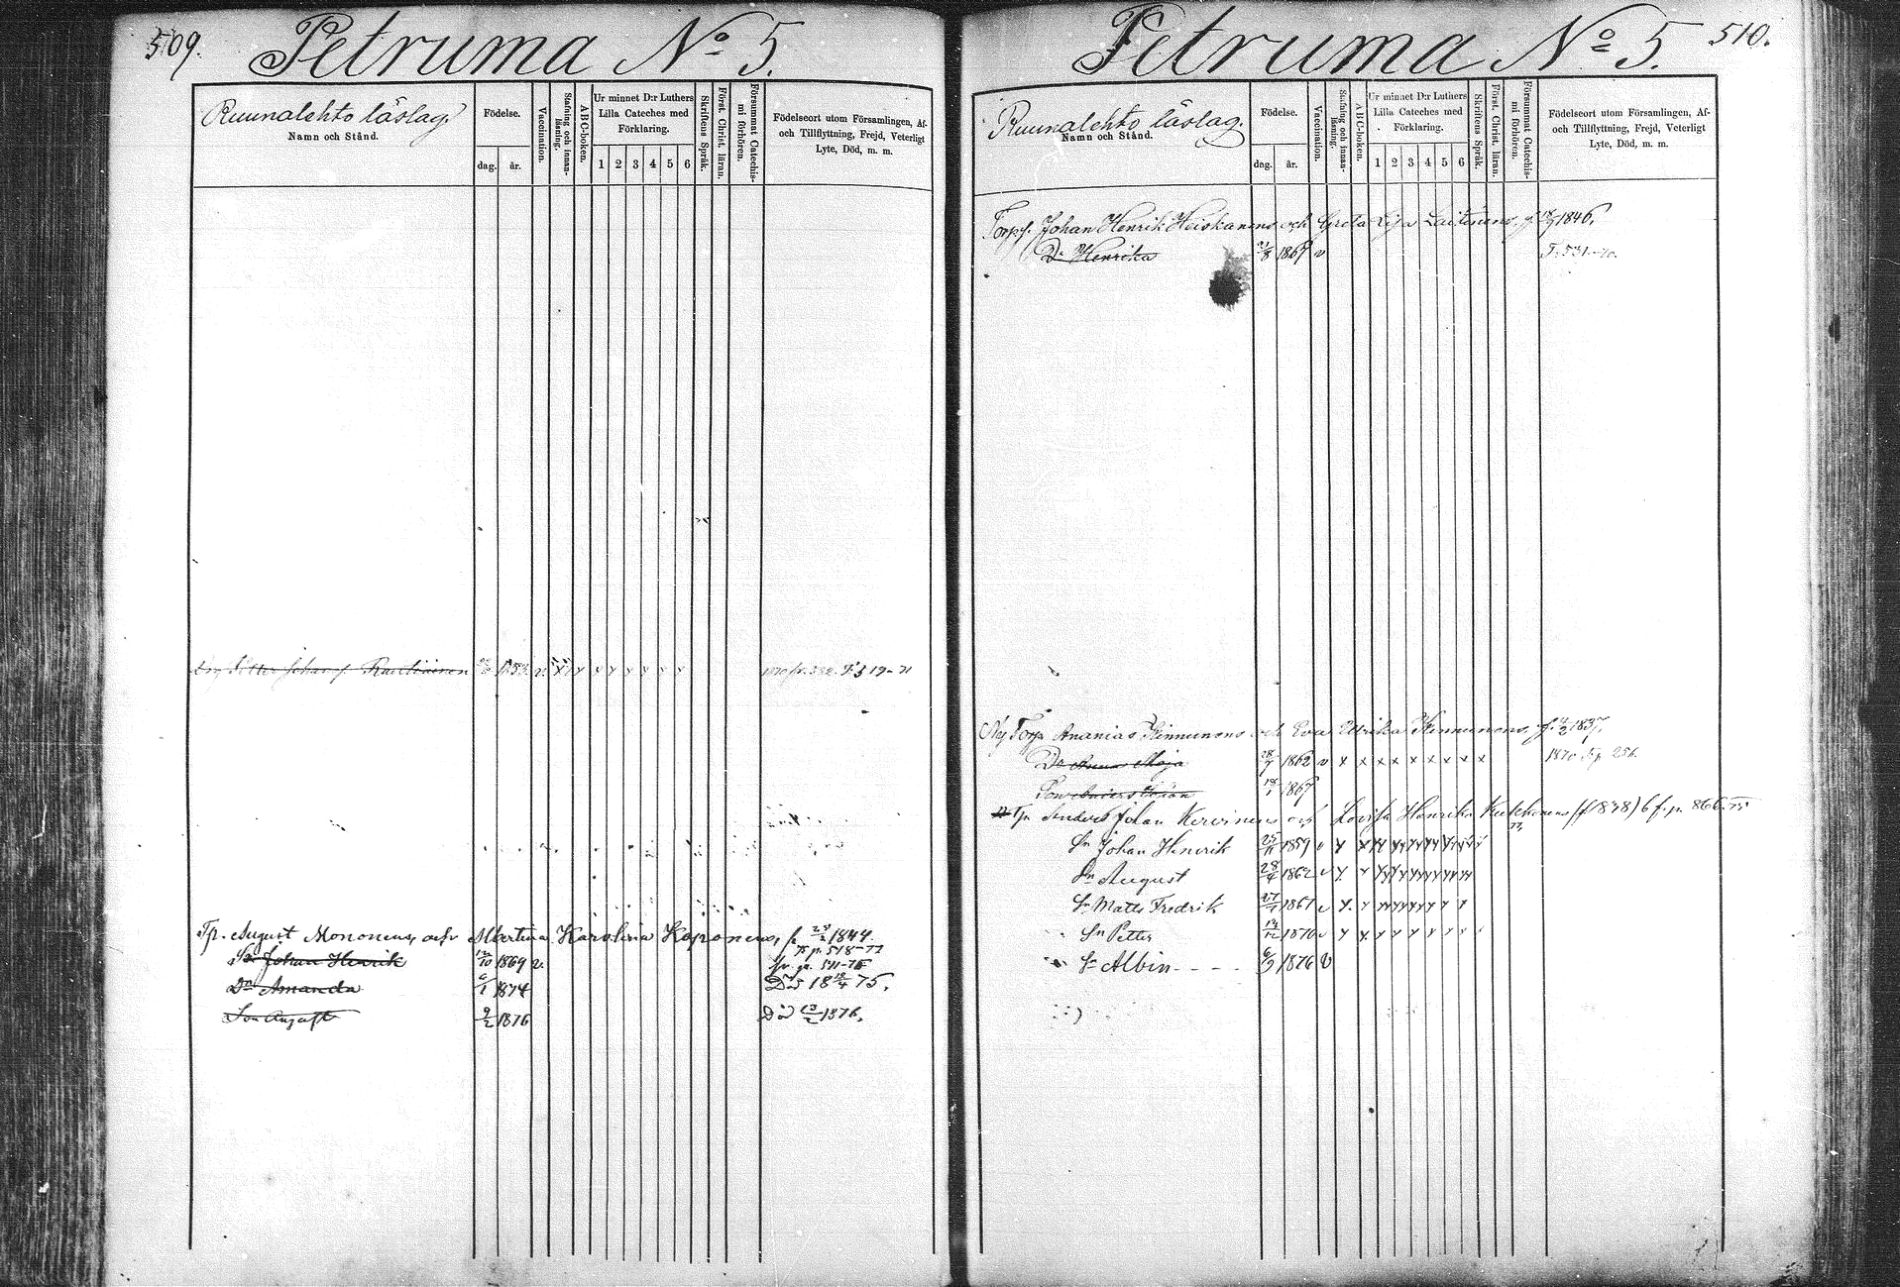 509.
Petruma No 5.
Ruunalehto läslag.
Namn och Stånd.
Födelse.
dag.
år.
Vaccination.
Stafning och innanläsning.
ABC-boken.
Ur minnet D:r Luthers
Lilla Cateches med
Förklaring.
1 2 3 4 5 6
Skriftens Språk.
Först. Christ. läran.
Försummat Catechismi förhören.
Födelseort utom Församlingen, Af-
och Tillflyttning, Frejd, Veterligt
Lyte, Död, m. m.
Petter Johan Rautiainen 1853 v. x x x x x x x x
Tp. August Mononens och Albertina Karolina Kaponens, f. 23/2 1844.
Tr p. 518-77
Sn Johan Henrik 12/10 1869 v.
Dr Amanda 6/1 1874 Död 18 18/4 75.
Son August 9/2 1876 Död 1876.
510.
Petruma No 5.
Ruunalehto läslag.
Namn och Stånd.
Födelse.
dag.
år.
Vaccination.
Stafning och innanläsning.
ABC-boken.
Ur minnet D:r Luthers
Lilla Cateches med
Förklaring.
1 2 3 4 5 6
Skriftens Språk.
Först. Christ. läran.
Försummat Catechismi förhören.
Födelseort utom Församlingen, Af-
och Tillflyttning, Frejd, Veterligt
Lyte, Död, m. m.
Torp. Johan Henrik Heiskanens och Greta Lisa Laitinens, 1846.
Dr Henrika 1867 v
Ny Torp Ananias Kinnunens och Eva Ulrika Kinnunens, f. 1837.
Dr Anna Maja 28/7 1862 v x x x x x x x x x 1870 Tp. 256.
Son Anders Johan 1867
Tp. Anders Johan Kervinens och Lovisa Henrika (f 1838)
Sn Johan Henrik 25/11 1859
Sn August 28/4 1862
Sn Matts Fredrik 1867
Sn Petter 1870
Sn Albin 6/9 1876 v